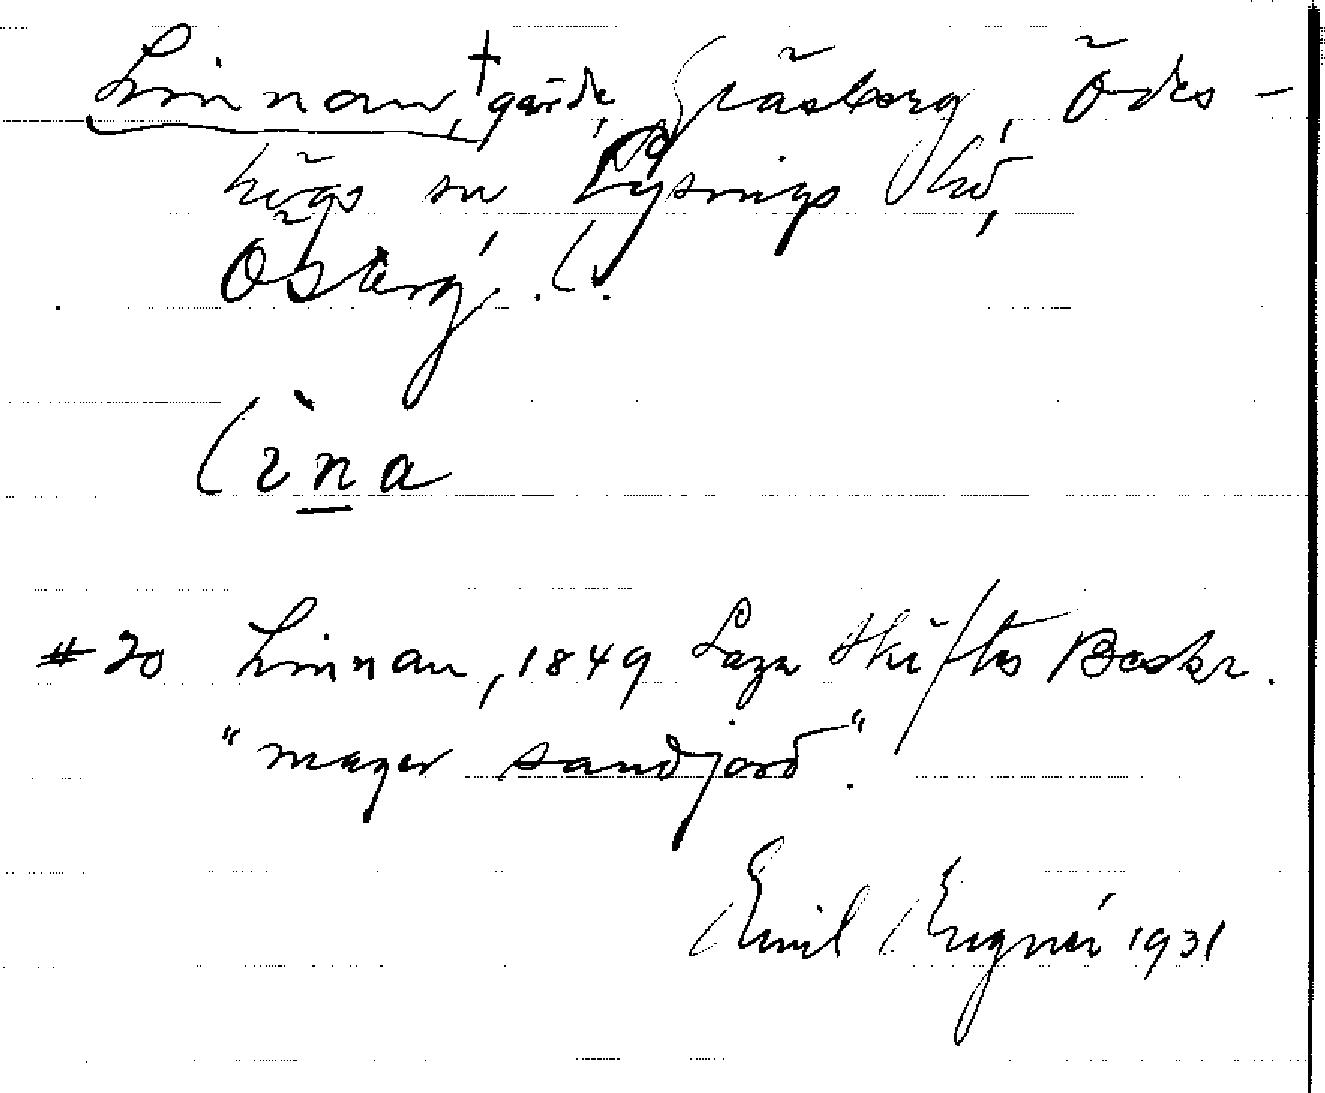 Linnan, † gärde, Gråsberg, Ödes-
högs sn Lysings hd,
Östergö. l.
lìna
#20 Linnan, 1849 Laga Skiftes Beskr.
"mager sandjord".
Emil Engnér 1931